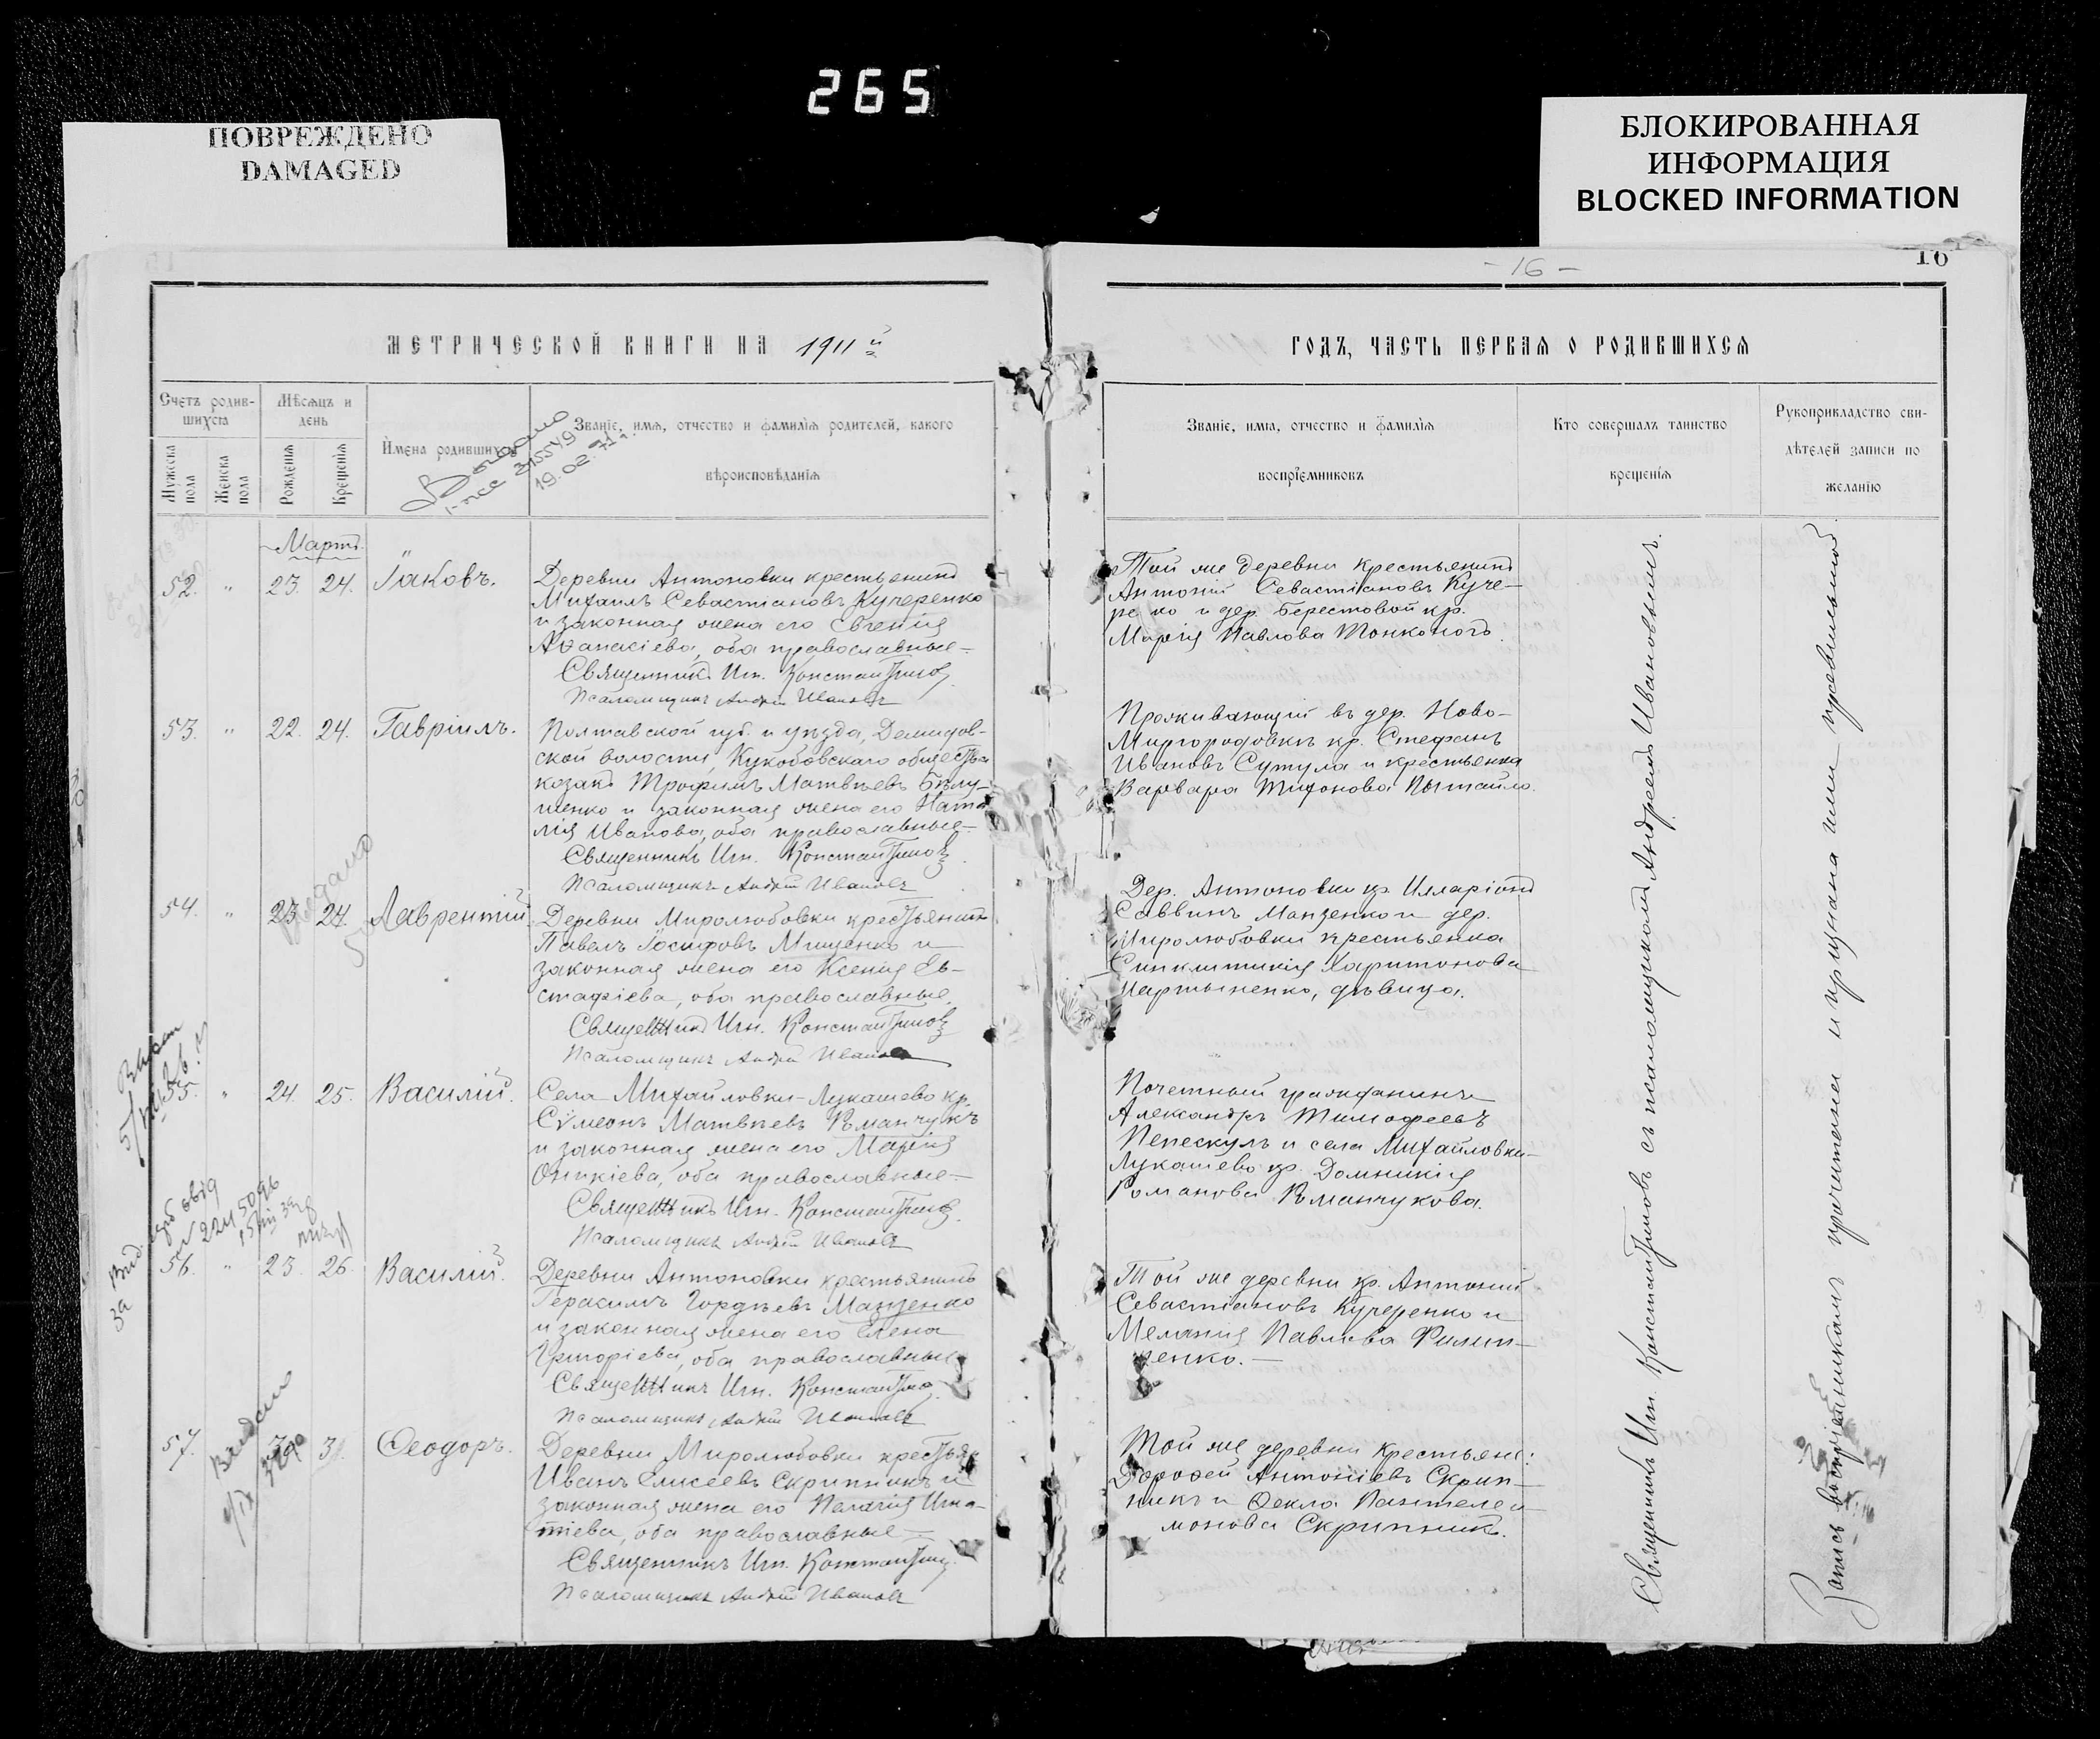 265
ПОВРЕЖДЕНО
DAMAGED
БЛОКИРОВАННАЯ
ИНФОРМАЦИЯ
BLOCKED INFORMATION
- 16 -
16
МЕТРИЧЕСКОЙ КНИГИ НА 1911й
ГОДЪ, ЧАСТЬ ПЕРВАЯ О РОДИВШИХСЯ
Счетъ родив-
шихся
Мужеска пола
Женска пола
Мѣсяцъ и
день
Рожденія
Крещенія
Имена родившихся
Званіе, имя, отчество и фамилія родителей, какого
вѣроисповѣданія
Званіе, имя, отчество и фамилія
воспріемниковъ
Кто совершалъ таинство
крещенія
Рукоприкладство сви-
дѣтелей записи по
желанію
315549
19.02.71г.
Мартъ
52. " 23. 24. Іаковъ.
Деревни Антоновки крестьянинъ
Михаилъ Севастіановъ Кучеренко
и законная жена его Евгенія
Аѳанасіева, оба православные
Священникъ Игн. Константиновъ
Псаломщикъ Андрей Ивановъ
Той же деревни крестьянинъ
Антоній Севастіановъ Куче-
ренко и дер. Берестовой кр.
Марія Павлова Тонконогъ.
53. " 22. 24. Гавріилъ.
Полтавской губ. и уѣзда, Демидов-
ской волости, Кукобовскаго общества
козакъ Трофимъ Матвѣевъ Бѣлу-
шенко и законная жена его Ната-
лія Иванова, оба православные
Священникъ Игн. Константиновъ
Псаломщикъ Андрей Ивановъ
Проживающій въ дер. Ново-
Миргородовкѣ кр. Стефанъ
Ивановъ Сутула и крестьянка
Варвара Тихонова
Выдано
54. " 23. 24. Лаврентій.
Деревни Миролюбовки крестьянинъ
Павелъ Іосифовъ Мищенко и
законная жена его Ксенія Ев-
стафіева, оба православные.
Священникъ Игн. Константиновъ
Псаломщикъ Андрей Ивановъ
Дер. Антоновки кр. Илларіонъ
Саввинъ Манзенко и дер.
Миролюбовки крестьянка
Синклитикія Харитонова
Мартыненко, дѣвица.
55. " 24. 25. Василій.
Села Михайловки-Лукашево кр.
Сѵмеонъ Матвѣевъ Романчукъ
и законная жена его Марія
Оникіева, оба православные
Священникъ Игн. Константиновъ
Псаломщикъ Андрей Ивановъ
Почетный гражданинъ
Александръ Тимофеевъ
Пепескулъ и села Михайловки-
Лукашево кр. Домникія
Романова Романчукова.
56. " 25. 26. Василій.
Деревни Антоновки крестьянинъ
Герасимъ Гордѣевъ Манзенко
и законная жена его Елена
Григоріева, оба православные
Священникъ Игн. Константиновъ
Псаломщикъ Андрей Ивановъ
Той же деревни кр. Антоній
Севастіановъ Кучеренко и
Меланія Павлова Филип-
ченко.
Выдано
57. 31. Ѳеодоръ.
Деревни Миролюбовки крестьян.
Иванъ Елисеевъ Скрипникъ и
законная жена его Пелагія Игна-
тіева, оба православные
Священникъ Игн. Константиновъ
Псаломщикъ Андрей Ивановъ
Той же деревни крестьяне:
Дороѳей Антоніевъ Скрип-
никъ и Ѳекла Пантелеи-
монова Скрипникъ.
Священникъ Игн. Константиновъ съ псаломщикомъ Андреемъ Ивановымъ.
Запись воспріемникамъ прочитана и признана ими правильной.